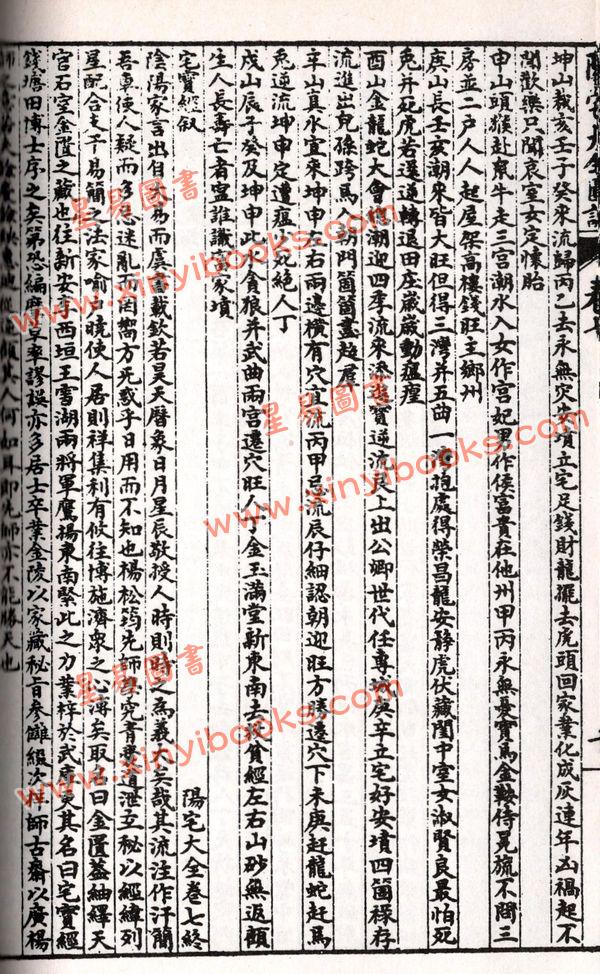 坤山裁亥壬子癸來流歸丙乙去永無突朱墳立宅足錢財龍擺去虎頭回家業化成灰連年凶禍起不
聞歡樂只聞哀室女定懷胎
申山頭猴赴鼠牛走三宮潮水入女作宮妃男作侯富貴在他州甲丙永無憂寶馬金鞍侍冕旒不問三
房並二戶人人起屋架高樓錢旺主鄉州
庚山長壬亥潮來皆大旺但得三灣并五曲一灣抱處得榮昌龍安靜虎伏藏閨中室女淑賢良最怕死
兔并死虎若還逆轉退田庄歲歲動瘟瘟
酉山金龍蛇大會 潮迎四季流來添進寶逆流艮上出公卿世代任專城庚辛立宅好安墳四箇祿存
流進出兒孫跨馬入朝門箇箇盡超羣
辛山真水宜來坤申左右兩邊橫有穴 流丙甲忌流辰仔細認朝迎旺方勝邊穴下未庚赶龍蛇赶馬
兔逆流坤申定遭瘟 死絕人丁
戌山辰子癸及坤申此水貪狼并武曲兩宮邊穴旺人丁金玉滿堂新東南去 貧經左右山砂無返顧
生人長壽亡者寧誰識 家墳
陽宅大全卷七終
宅寶經叙
陰陽家言出自 易而虞書載欽若昊天曆象日月星辰敬授人時則時之為義大矣哉其流注作汗簡
吾 使人疑而多忌迷亂而罔嚮方死 乎日用而不知也楊松筠先師學究青 道泄至秘以經緯列
星配合支干易簡之法家喻 曉使人居則祥集利有攸往博施濟眾之心溥矣取名曰金匱蓋紬繹天
宮石室金匱之藏也往新安 西垣王雪湖兩將軍鷹揚東南緊此之力業梓於武 其名曰宅寶經
錢塘田博士序之矣第恐編 草率謬誤亦多居士卒業金陵以家藏秘旨參讎綴次梓師古齋以廣楊
何如耳即先師亦不能勝天也
www.xinyibooks.com
星易圖書
www.xinyibooks.com
星易圖書
www.xinyibooks.com
星易圖書
www.xinyibooks.com